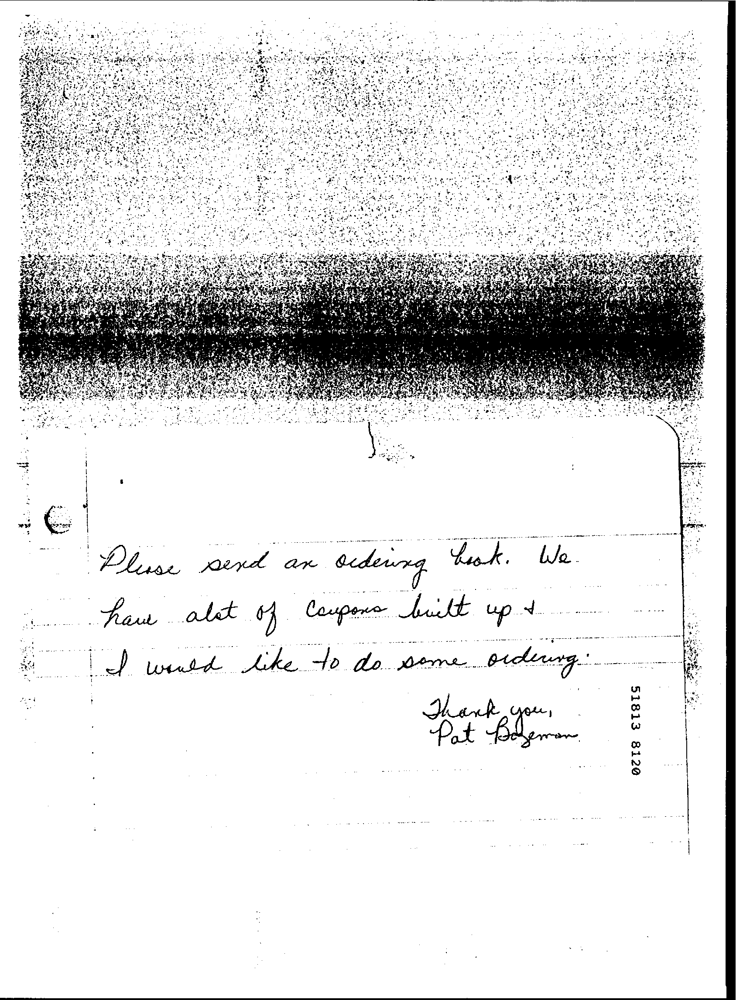 Please send an ordering book. We
have alot of Coupons built up &
I would like to do some ordering.
Thank you,
Pat Bozeman
51813 8120